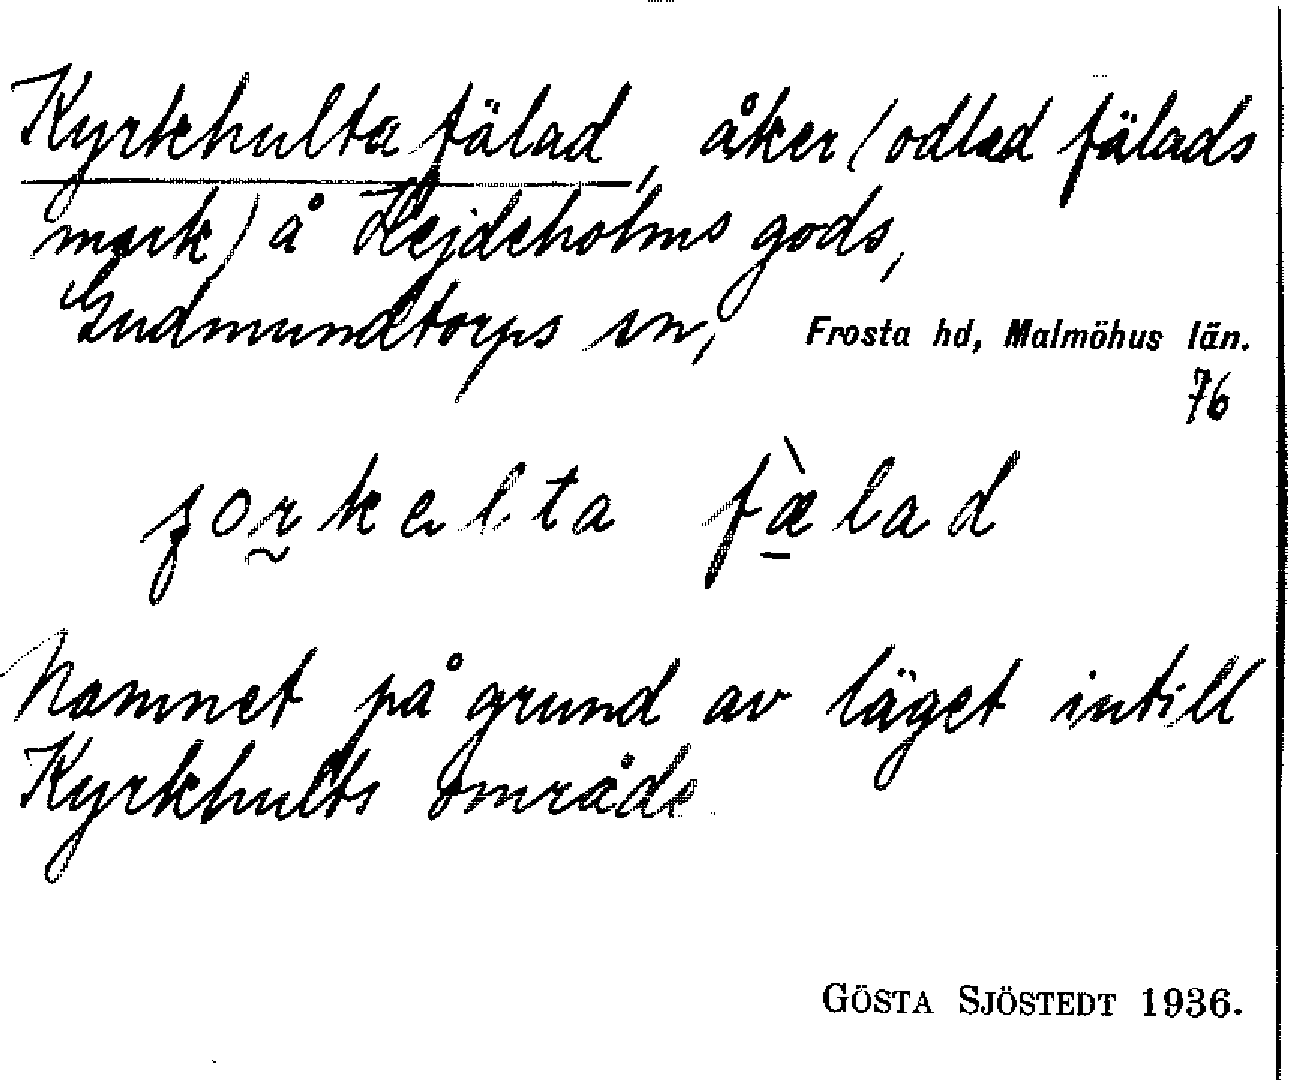 Kyrkhulta fälad, åker (odlad fälads
mark) å Hejdeholms gods,
Gudmundtorps sn, Frosta hd, Malmöhus län.
76
fælad
Namnet på grund av läget intill
Kyrkhults område.
GÖSTA SJÖSTEDT 1936.